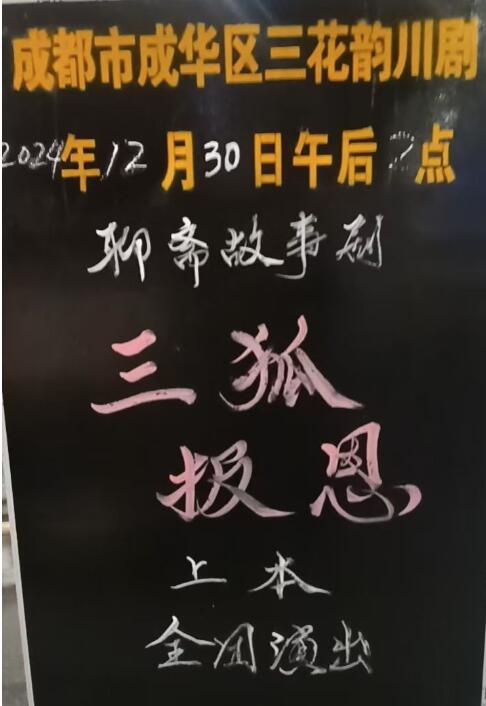 成都市成华区三花韵川剧
2024年12月30日午后2点
聊斋故事剧
三狐
报恩
上本
全团演出